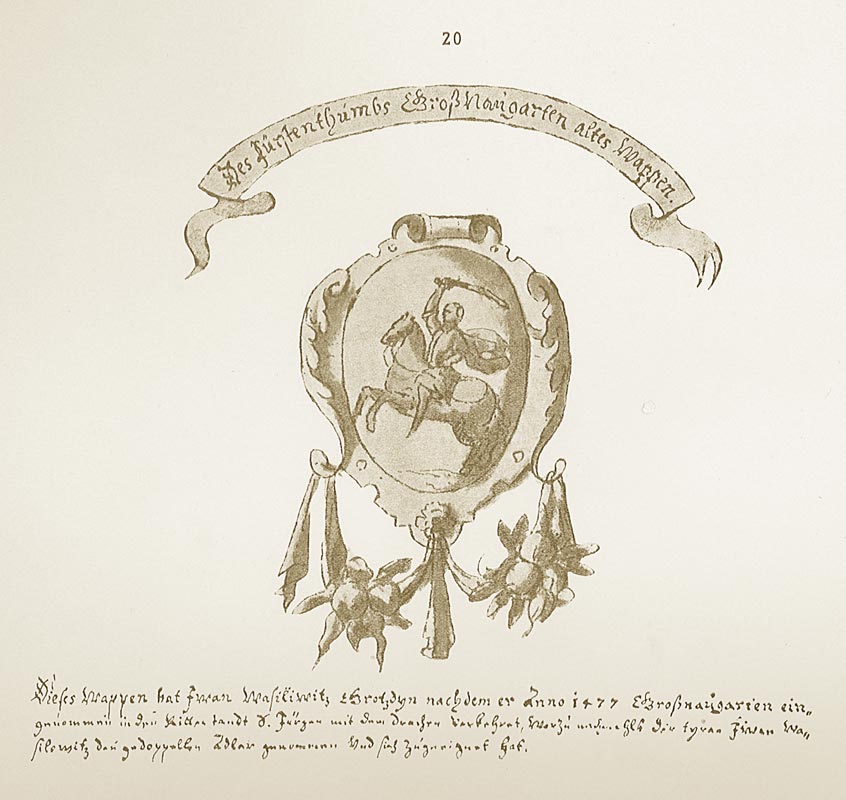 20
Des Fürstenthumbs GroßNaugarten altes Wappen.
Dieses Wappen hat Iwan Wasiliwitz Grotzdyn nachdem er Anno 1477 Großnaugarten ein=
genommen in den Ritter S. Jürgen mit dem Drachen verkehret, worzu der tyran Iwan Wa=
silowitz den gedoppelten Adler genommen Und sich zugeeignet hat.